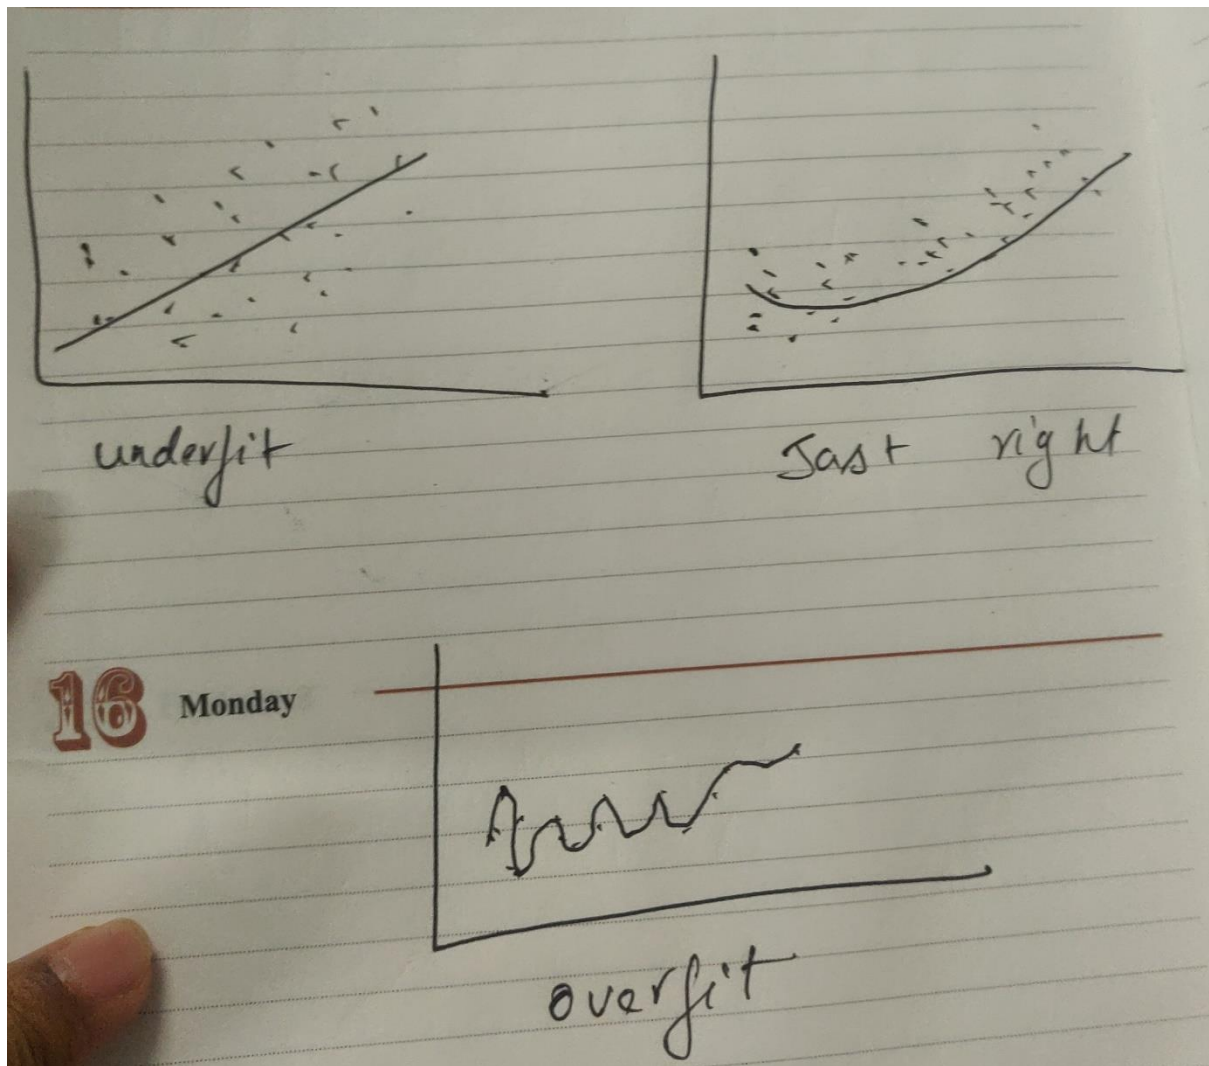 underfit
Jast right
16 Monday
overfit